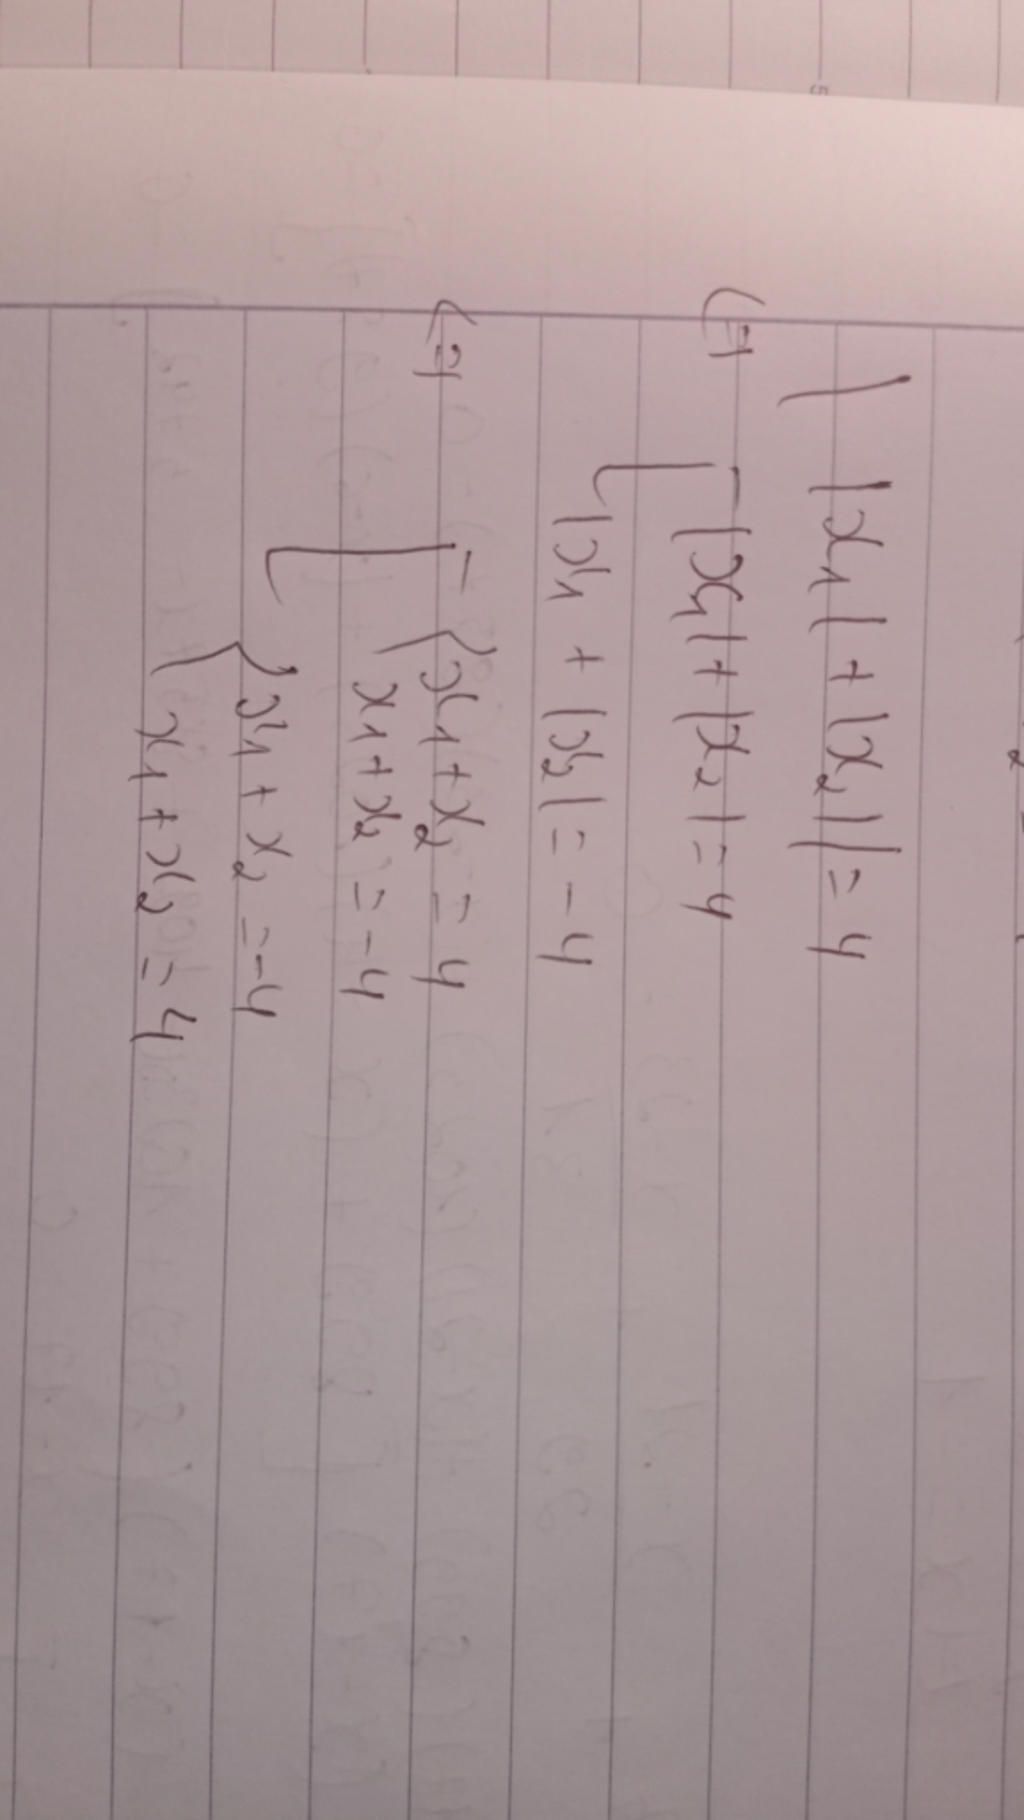 | |x₁| + |x₂| | = 4
⇔ [ |x₁| + |x₂| = 4
|x₁ + |x₂| = -4
⇔ [ { x₁ + x₂ = 4
x₁ + x₂ = -4
{ x₁ + x₂ = -4
x₁ + x₂ = 4